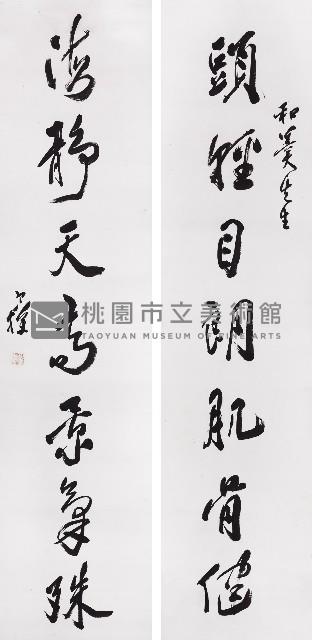 頭輕目朗肌骨健
和美先生
海靜天高景氣殊
桃園市立美術館
TAOYUAN MUSEUM OF FINE ARTS